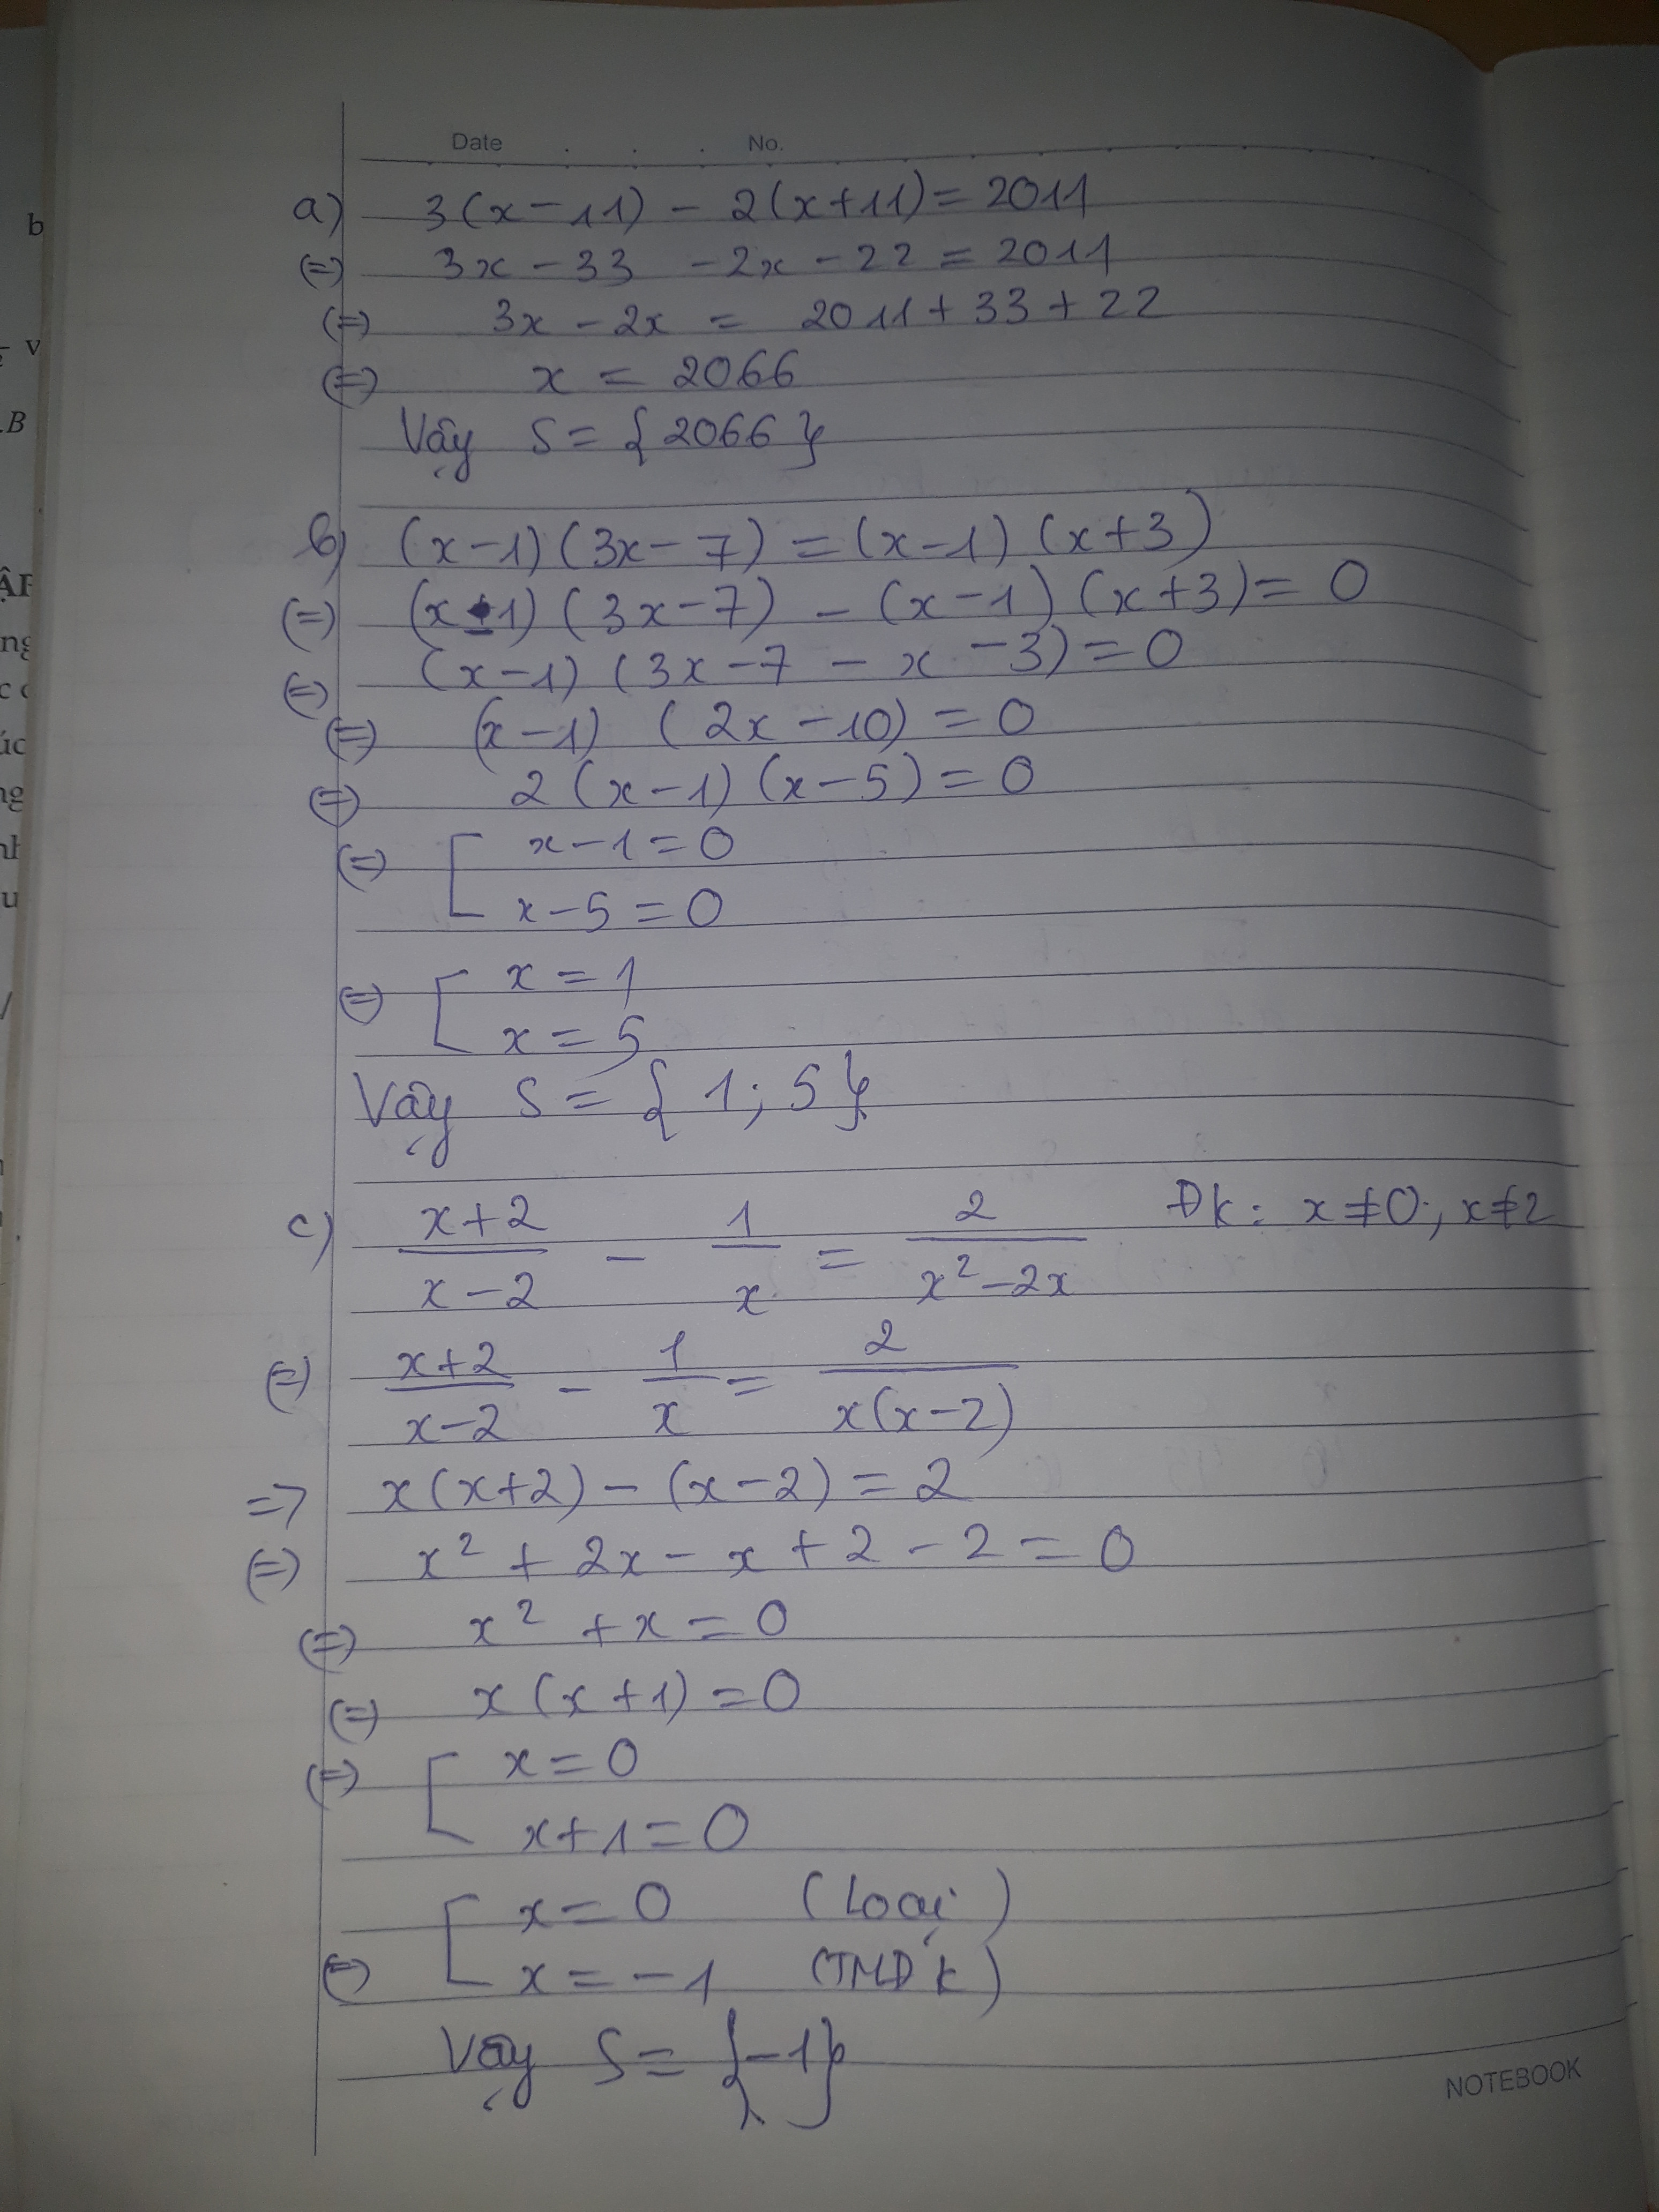 Date . . . No.
a) 3(x-11) - 2(x+11) = 2011
(=) 3x - 33 - 2x - 22 = 2011
(=) 3x - 2x = 2011 + 33 + 22
(=) x = 2066
Vậy S = {2066}
b) (x-1)(3x-7) = (x-1)(x+3)
(=) (x-1)(3x-7) - (x-1)(x+3) = 0
(=) (x-1)(3x-7-x-3) = 0
(=) (x-1)(2x-10) = 0
(=) 2(x-1)(x-5) = 0
(=) [ x-1 = 0
x-5 = 0
(=) [ x = 1
x = 5
Vậy S = {1; 5}
c) (x+2)/(x-2) - 1/x = 2/(x²-2x) Đk: x≠0; x≠2
(=) (x+2)/(x-2) - 1/x = 2/(x(x-2))
=> x(x+2) - (x-2) = 2
(=) x² + 2x - x + 2 - 2 = 0
(=) x² + x = 0
(=) x(x+1) = 0
(=) [ x = 0
x+1 = 0
(=) [ x = 0 (Loại)
x = -1 (TMĐk)
Vậy S = {-1}
NOTEBOOK
b
v
.B
ẬP
ng
c c
úc
ng
nh
u